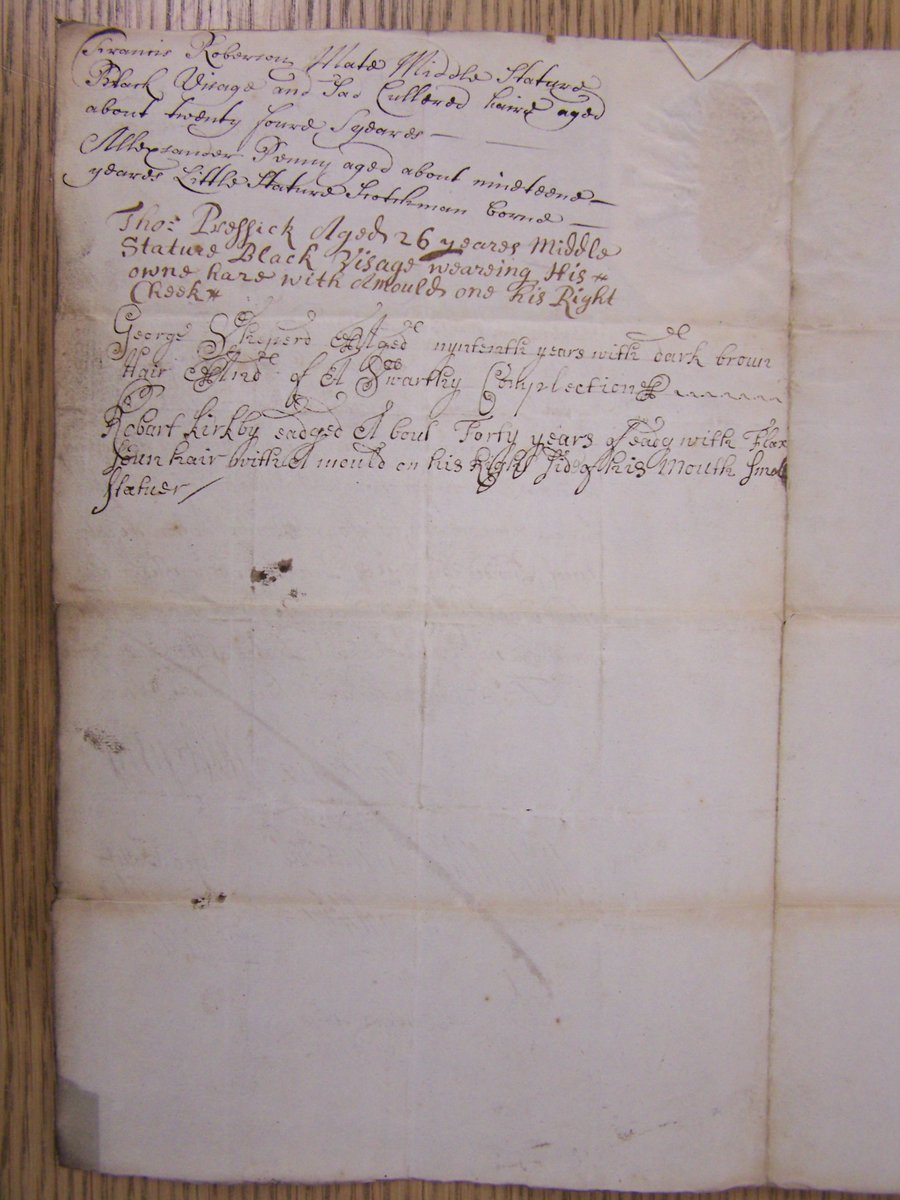 Francis Roberson Mate Middle Stature
Black Visage and Sad Cullered haire aged
about twenty foure yeares —
Allexsander Penny aged about nineteene —
yeares Little Stature Scotchman borne —
Tho: Pressick Aged 26 yeares Middle
Stature Black Visage weareing His
owne hare with a mould one his Right
Cheek
George Sheperd Aged nyntenth years with dark brown
Hair And of A Swarthy Complection
Robart Kirkby eadged A bout Forty years of eadg with Flax
hair with A mould on his Right Side of his Mouth Smol
Statuer